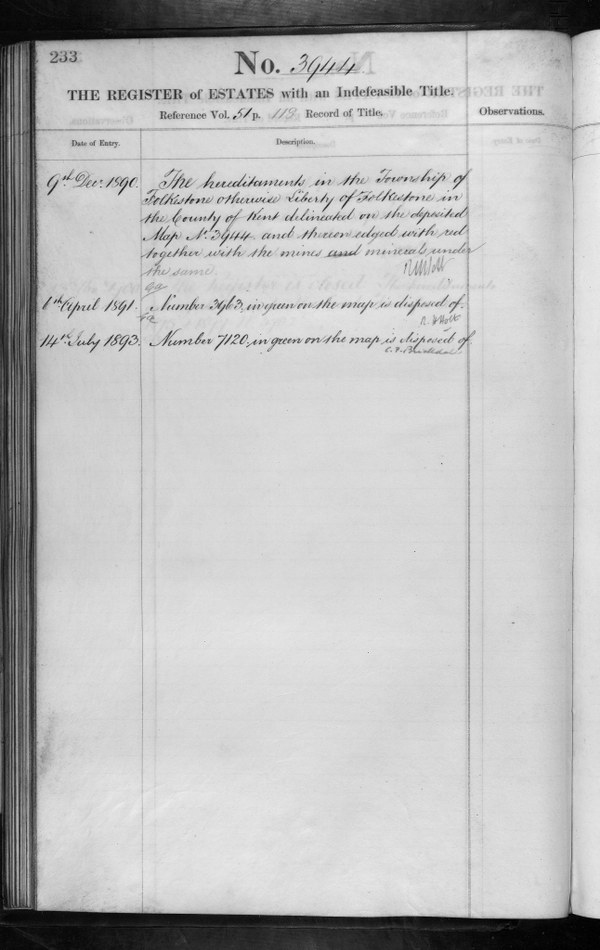 233
No. 3944
THE REGISTER of ESTATES with an Indefeasible Title.
Reference Vol. 51 p. 113 Record of Title.
Observations.
Date of Entry.
Description.
9th Decr. 1890.
The hereditaments in the Township of
Folkestone otherwise Liberty of Folkestone in
the County of Kent delineated on the deposited
Map No. 3944 and thereon edged with red
together with the mines and mineral under
the same.
6th April 1891. Number 3963, in green on the map is disposed of.
14th July 1893. Number 7120, in green on the map is disposed of.